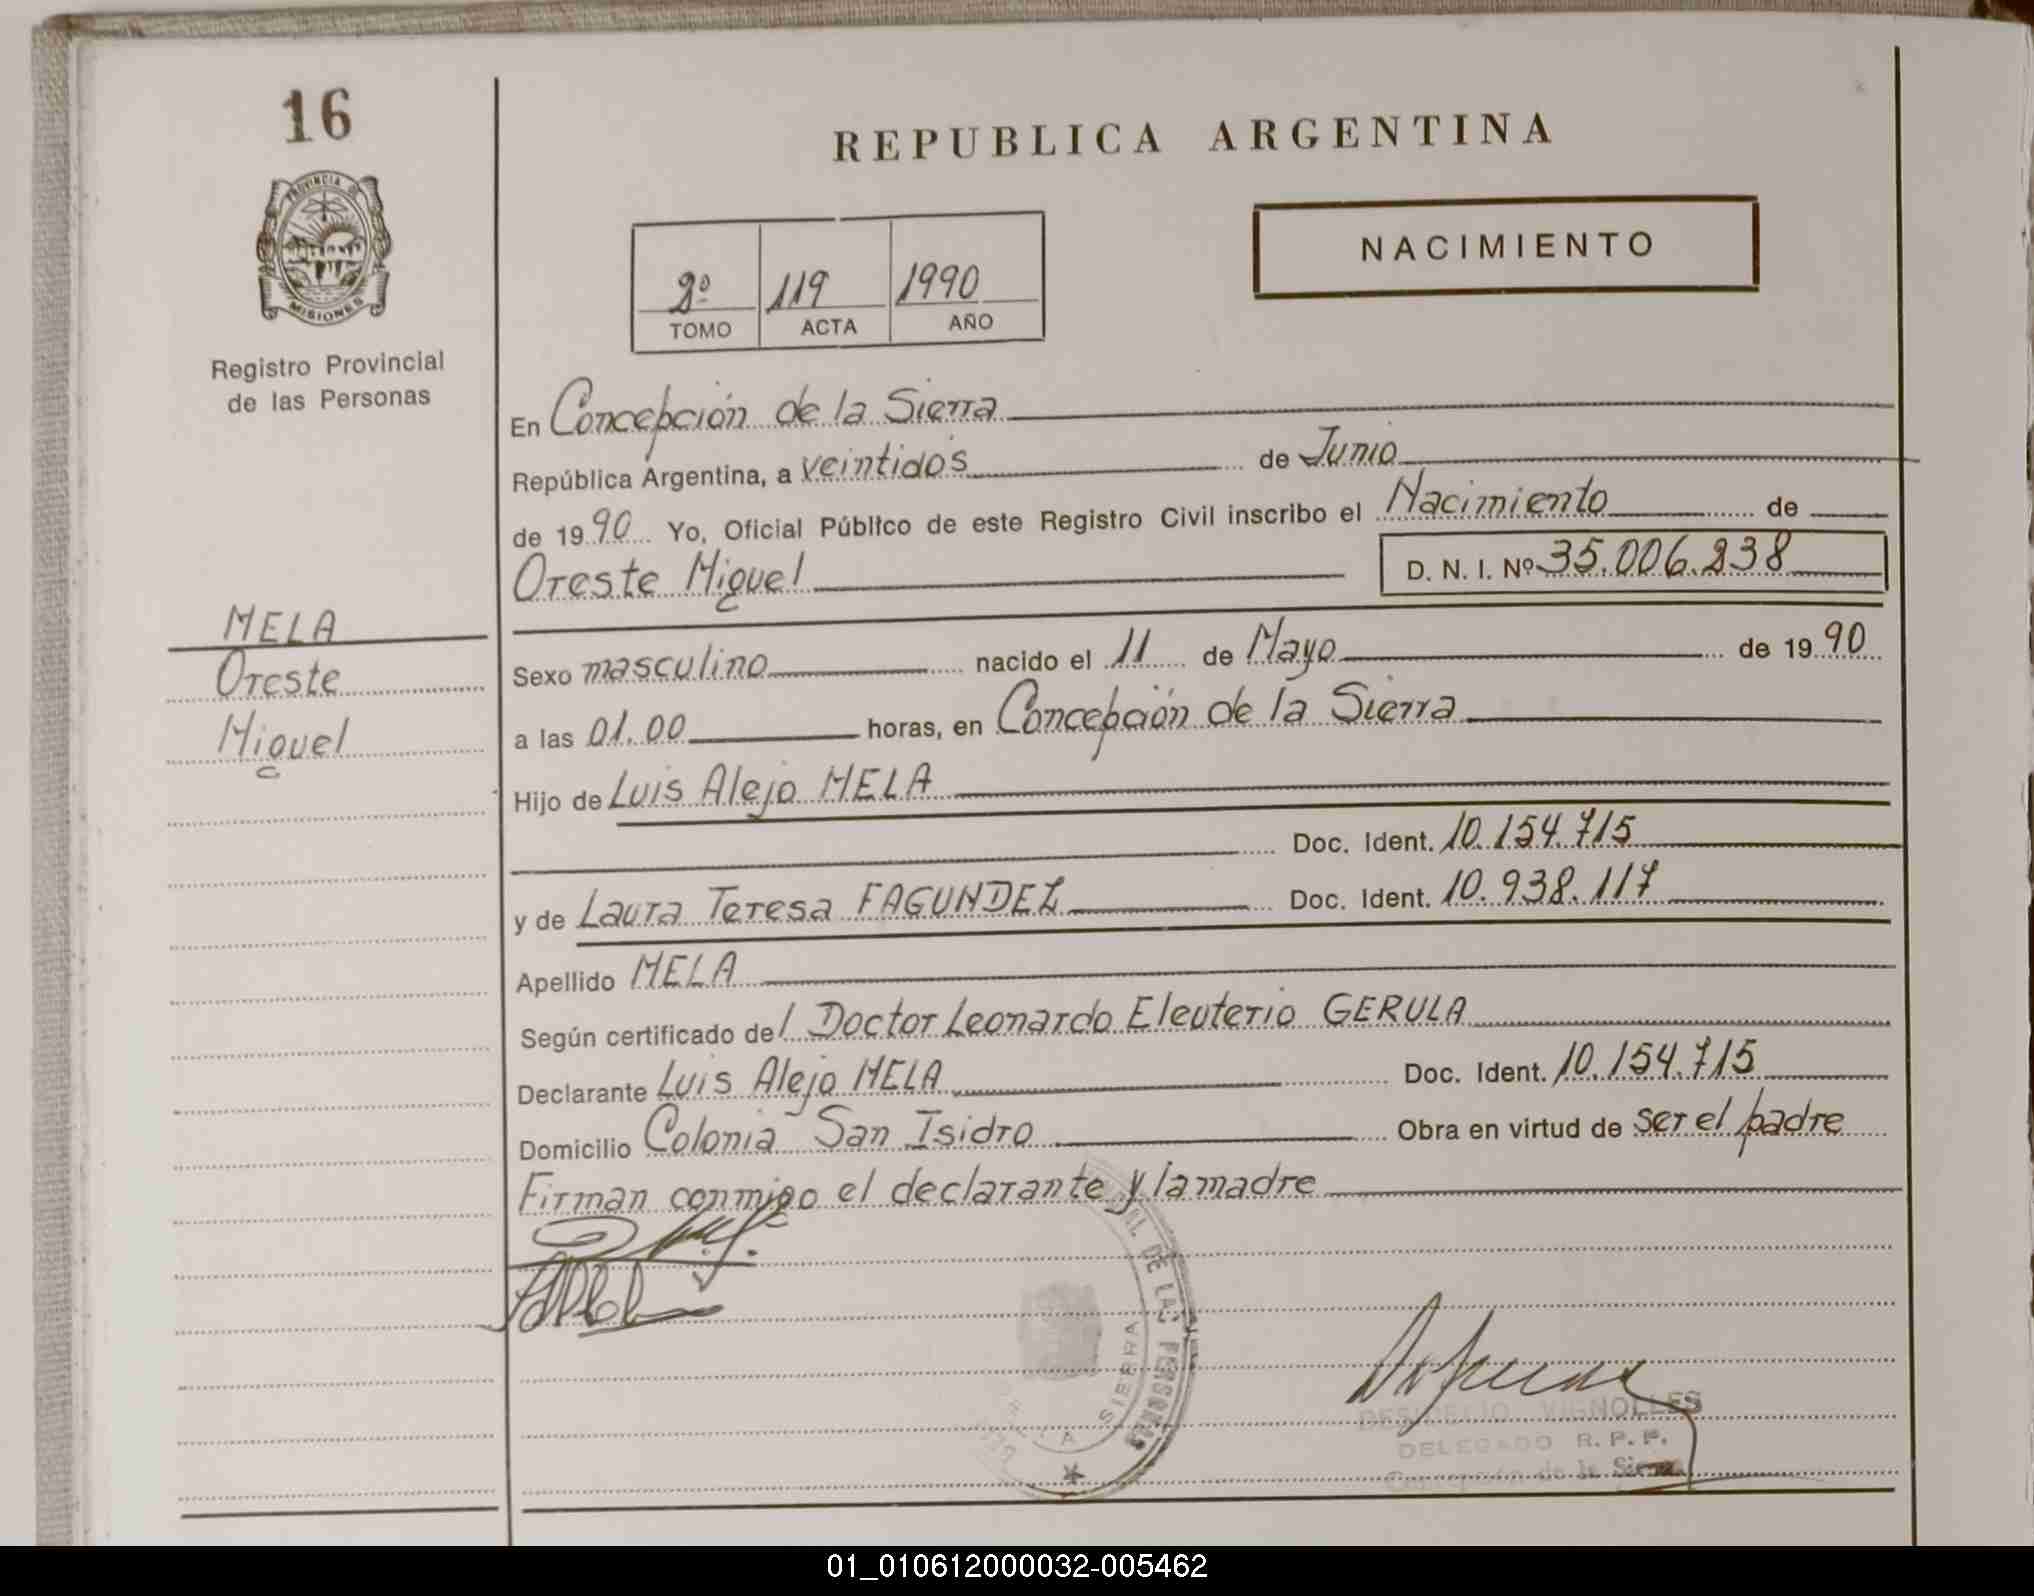 16
PROVINCIA DE
MISIONES
Registro Provincial
de las Personas
MELA
Oreste
Miguel
REPUBLICA ARGENTINA
NACIMIENTO
2º 119 1990
TOMO ACTA AÑO
En Concepción de la Sierra
República Argentina, a veintidós de Junio
de 1990 Yo, Oficial Público de este Registro Civil inscribo el Nacimiento de
Oreste Miguel D. N. I. Nº 35.006.238
Sexo masculino nacido el 11 de Mayo de 1990
a las 01.00 horas, en Concepción de la Sierra
Hijo de Luis Alejo MELA
Doc. Ident. 10.154.715
y de Laura Teresa FAGUNDEZ Doc. Ident. 10.938.117
Apellido MELA
Según certificado del Doctor Leonardo Eleuterio GERULA
Declarante Luis Alejo MELA Doc. Ident. 10.154.715
Domicilio Colonia San Isidro Obra en virtud de ser el padre
Firman conmigo el declarante y la madre
DE LAS PERSONAS
LA SIERRA
VIGNOLLES
DELEGADO R. P. P.
Concepción de la Sierra
01_010612000032-005462